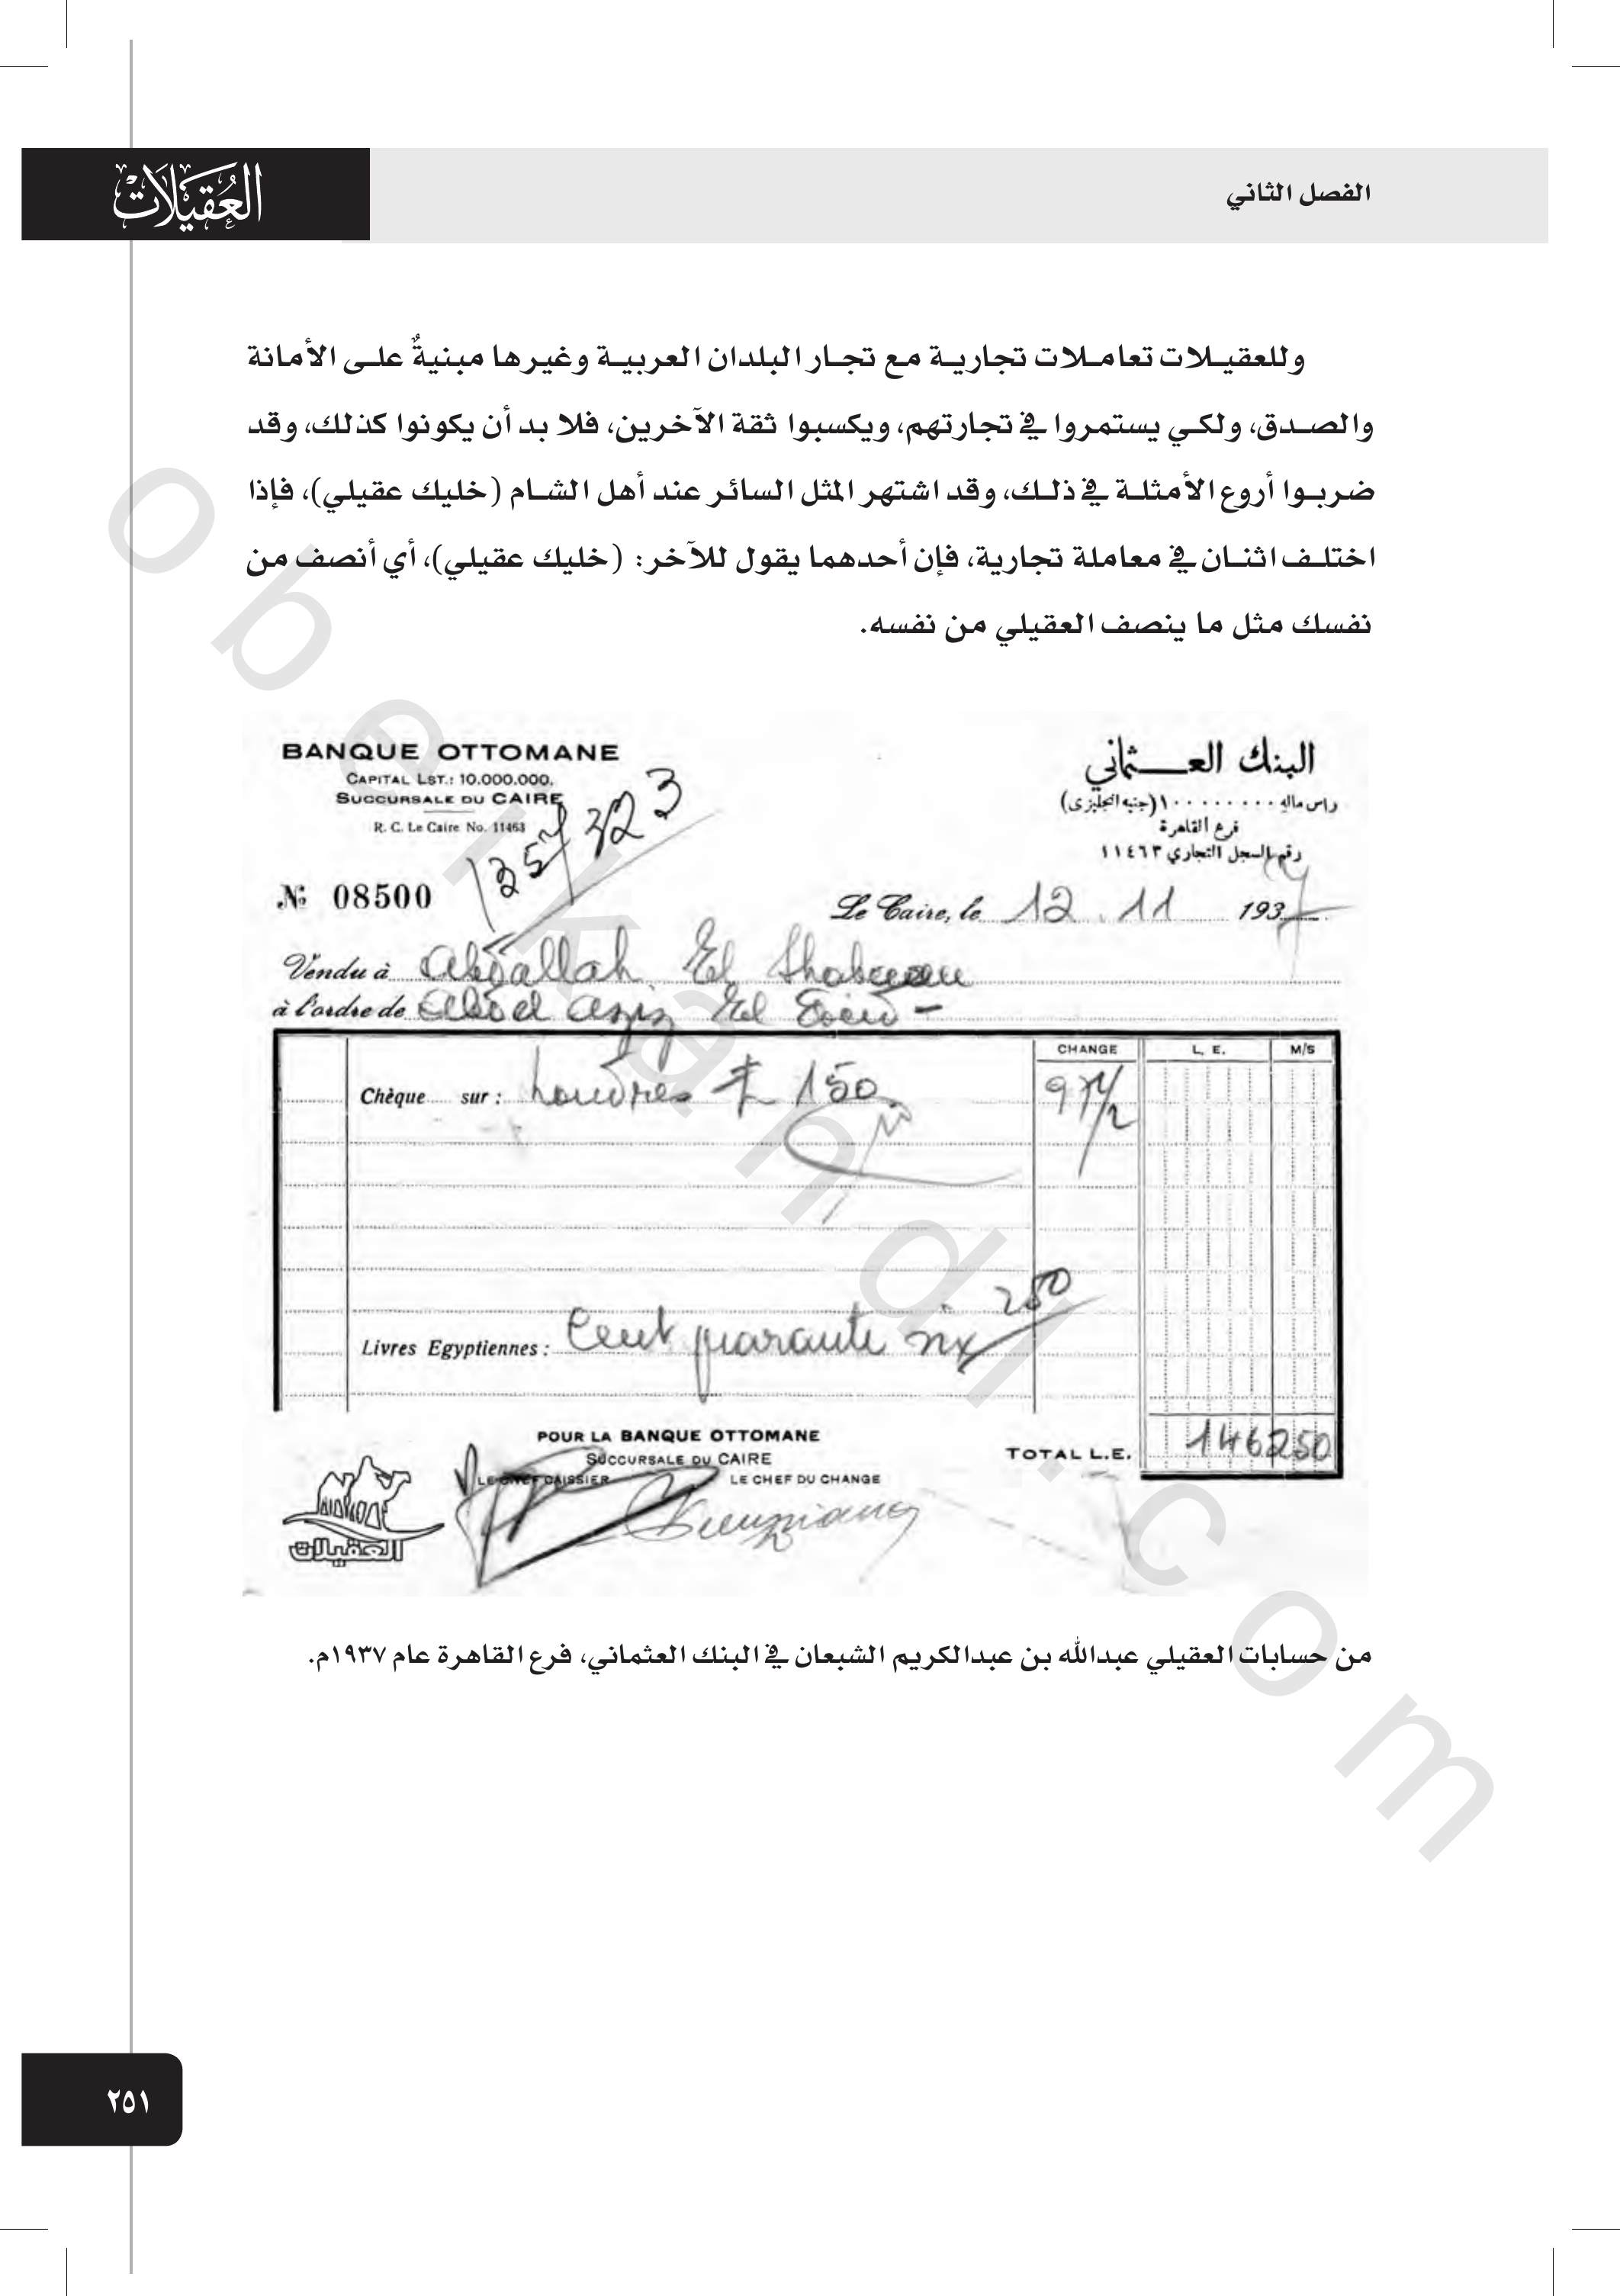 الفصل الثاني
العقيلات
وللعقيلات تعاملات تجارية مع تجار البلدان العربية وغيرها مبنيةٌ على الأمانة
والصدق، ولكي يستمروا في تجارتهم، ويكسبوا ثقة الآخرين، فلا بد أن يكونوا كذلك، وقد
ضربوا أروع الأمثلة في ذلك، وقد اشتهر المثل السائر عند أهل الشام (خليك عقيلي)، فإذا
اختلف اثنان في معاملة تجارية، فإن أحدهما يقول للآخر: (خليك عقيلي)، أي أنصف من
نفسك مثل ما ينصف العقيلي من نفسه.
BANQUE OTTOMANE
CAPITAL LST.: 10.000.000.
SUCCURSALE DU CAIRE
R. C. Le Caire No. 11463
البنك العثماني
راس ماله ١٠٠٠٠٠٠٠٠ (جنيه انجليزى)
فرع القاهرة
رقم السجل التجاري ١١٤٦٣
323
№ 08500
Le Caire, le 12.11 1937
Vendu à Abdallah El Shabaan
à l'ordre de Abdel Aziz El
CHANGE L. E. M/S
Chèque sur : Londres £ 150 97 1/2
Livres Egyptiennes : Cent quarante six 250
POUR LA BANQUE OTTOMANE
SUCCURSALE DU CAIRE
LE CHEF CAISSIER LE CHEF DU CHANGE
TOTAL L.E. 146250
العقيلات
من حسابات العقيلي عبدالله بن عبدالكريم الشبعان في البنك العثماني، فرع القاهرة عام ١٩٣٧م.
٢٥١
obeikandl.com